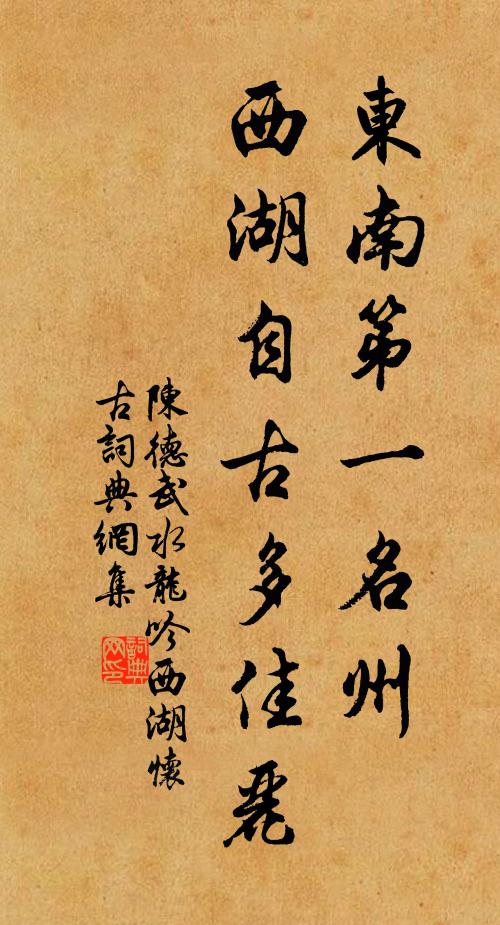 東南第一名州
西湖自古多佳麗
陳德武水龍吟西湖懷
古詞典網集
詞典網印